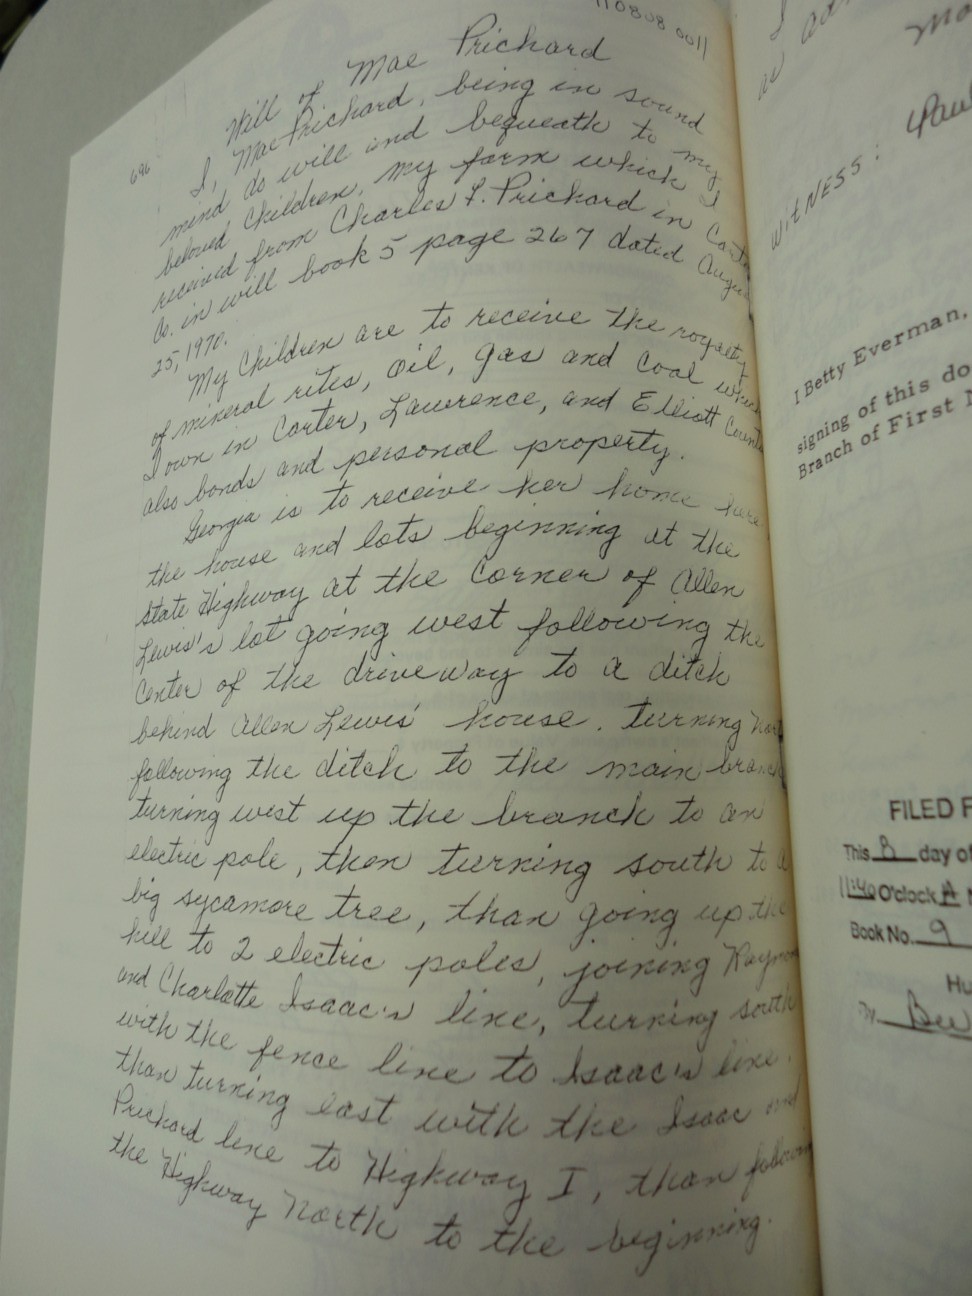 110808 0011
696
Will of Mae Prichard
I, Mae Prichard, being in sound
mind do will and bequeath to my
beloved Children, my farm which I
received from Charles F. Prichard in Carte
Co. in will book 5 page 267 dated Augu
25, 1970.
My Children are to receive the royalty
of mineral rites, oil, gas and coal which
I own in Carter, Lawrence, and Elliott Count
also bonds and personal property.
Georgia is to receive her home here
the house and lots beginning at the
State Highway at the corner of Allen
Lewis's lot going west following the
center of the driveway to a ditch
behind Allen Lewis' house. turning Nort
following the ditch to the main branch
turning west up the branch to an
electric pole, then turning south to a
big sycamore tree, than going up the
hill to 2 electric poles, joining Raymon
and Charlotte Isaac's line, turning south
with the fence line to Isaac's line.
than turning east with the Isaac and
Prichard line to Highway I, than followin
the Highway North to the beginning.
I
as adm
Ma
WITNESS: Paul
I Betty Everman,
signing of this do
Branch of First N
FILED F
This 8 day of
11:40 O'clock A M
Book No. 9
Hu
Bee